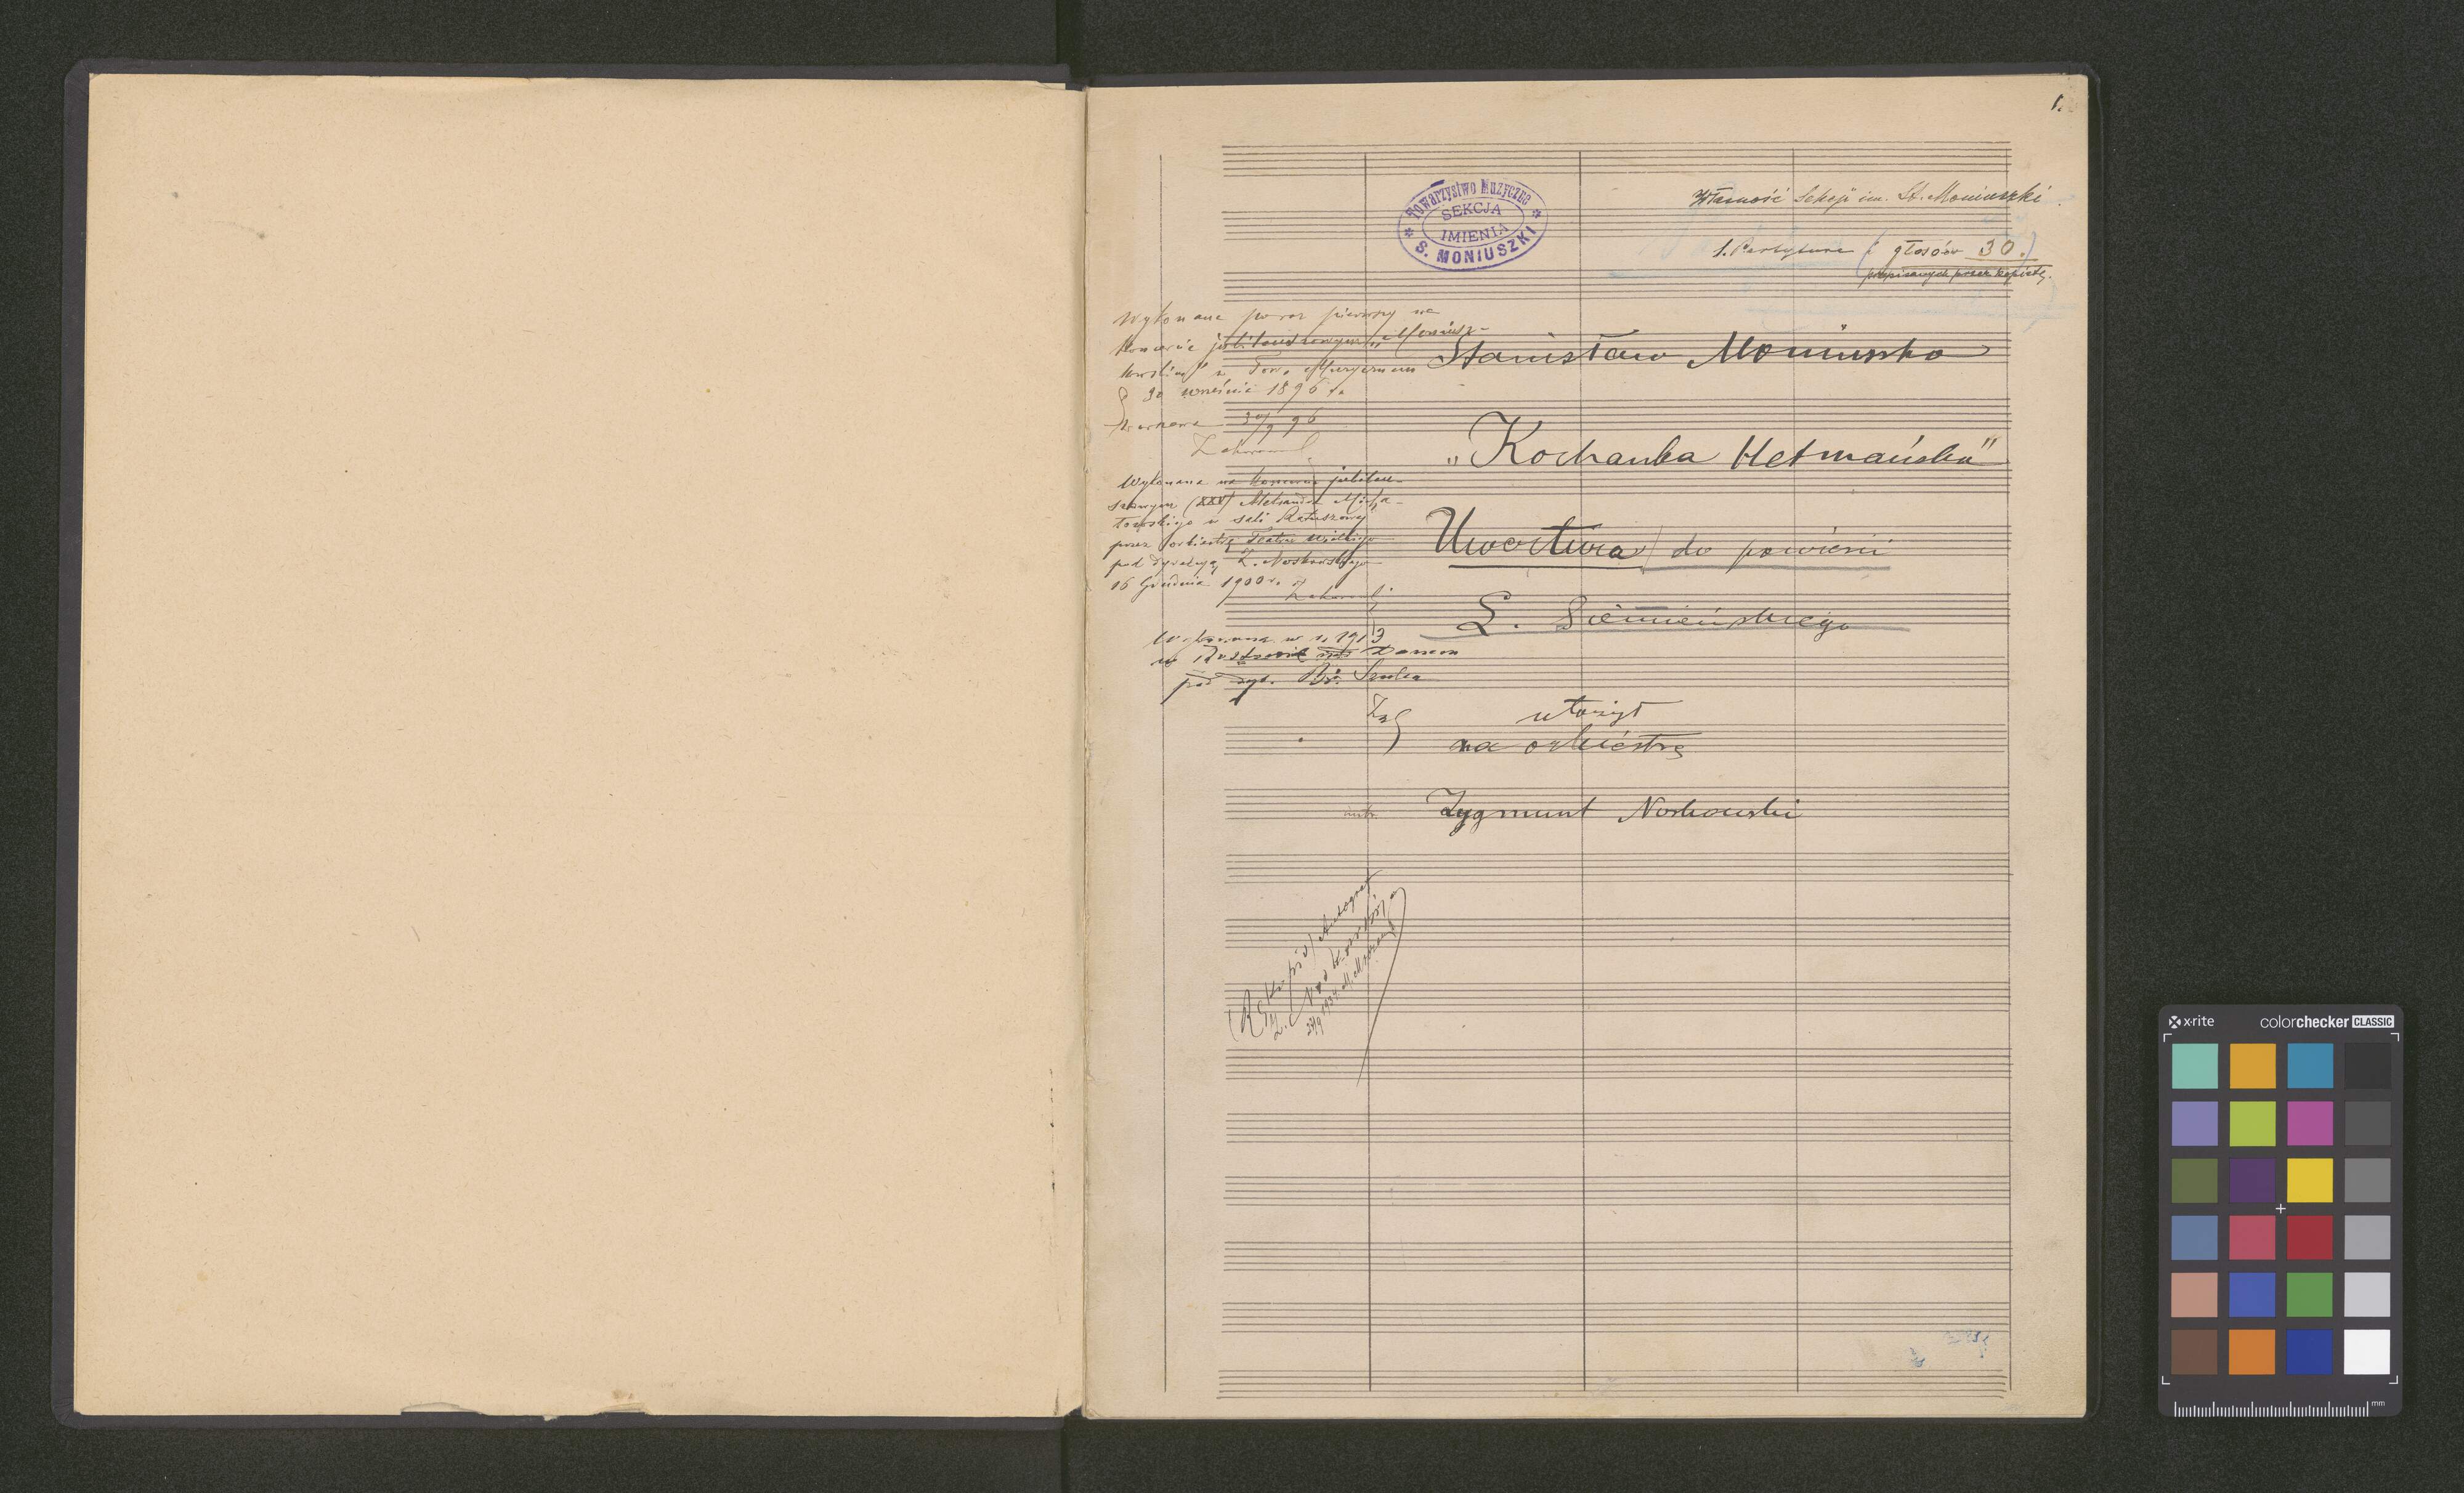 1.
Towarzystwo Muzyczne
SEKCJA
IMIENIA
S. MONIUSZKI
Własność Sekcji im. St. Moniuszki
1. Partytura (i głosów 30.)
przepisanych przez kopistę.
Wykonane po raz pierwszy na
koncercie jubileuszowym „Moniusz-
kowskim" w Tow. Muzycznem
d 30 września 1896 r.
Warszawa 30/9 96
Wykonana na koncercie jubileu-
szowym (XXV) Aleksandra Micha-
łowskiego w sali Ratuszowej
przez orkiestrę Teatru Wielkiego
pod dyrekcją Z. Noskowskiego
16 Grudnia 1900 r.
Wykonana w r. 1913
w Rostowie nad Donem
pod dyr. Br. Szulca
Stanisław Moniuszko
„Kochanka Hetmańska"
Uwertura do powieści
L. Siemieńskiego
ułożył
na orkiestrę
Zygmunt Noskowski
(Rękopis) Autograf
Z. Noskowskiego
1934
x-rite
colorchecker CLASSIC
mm